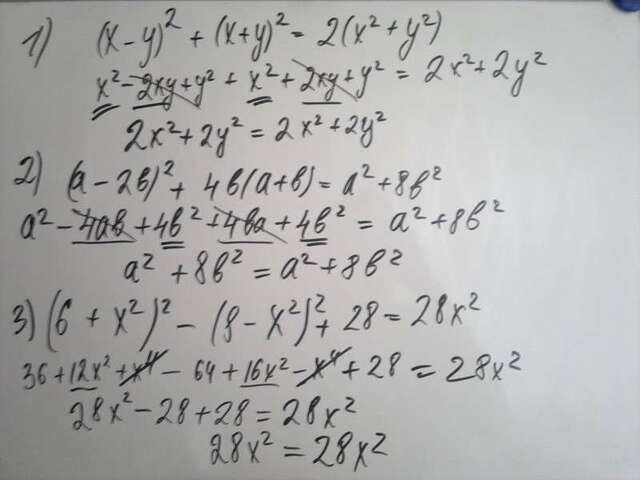 1) (x-y)² + (x+y)² = 2(x²+y²)
x²-2xy+y² + x²+2xy+y² = 2x²+2y²
2x²+2y² = 2x²+2y²
2) (a-2b)² + 4b(a+b) = a²+8b²
a²-4ab+4b²+4ba+4b² = a²+8b²
a²+8b² = a²+8b²
3) (6+x²)² - (8-x²)² + 28 = 28x²
36+12x²+x⁴-64+16x²-x⁴+28 = 28x²
28x²-28+28 = 28x²
28x² = 28x²